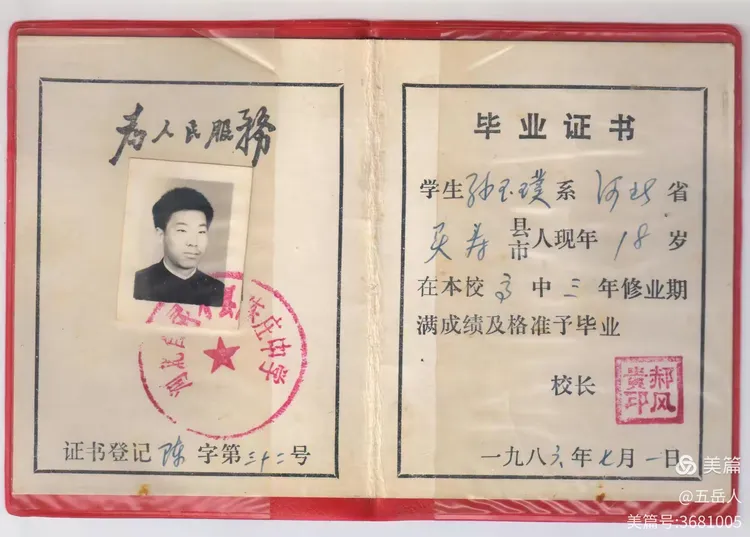 为人民服務
河北省灵寿县陈庄中学
证书登记陈字第三十二号
毕业证书
学生孙玉璞系河北省
灵寿县市人现年18岁
在本校高中三年修业期
满成绩及格准予毕业
校长
郝风贵印
一九八六年七月一日
美篇
@五岳人
美篇号:3681005